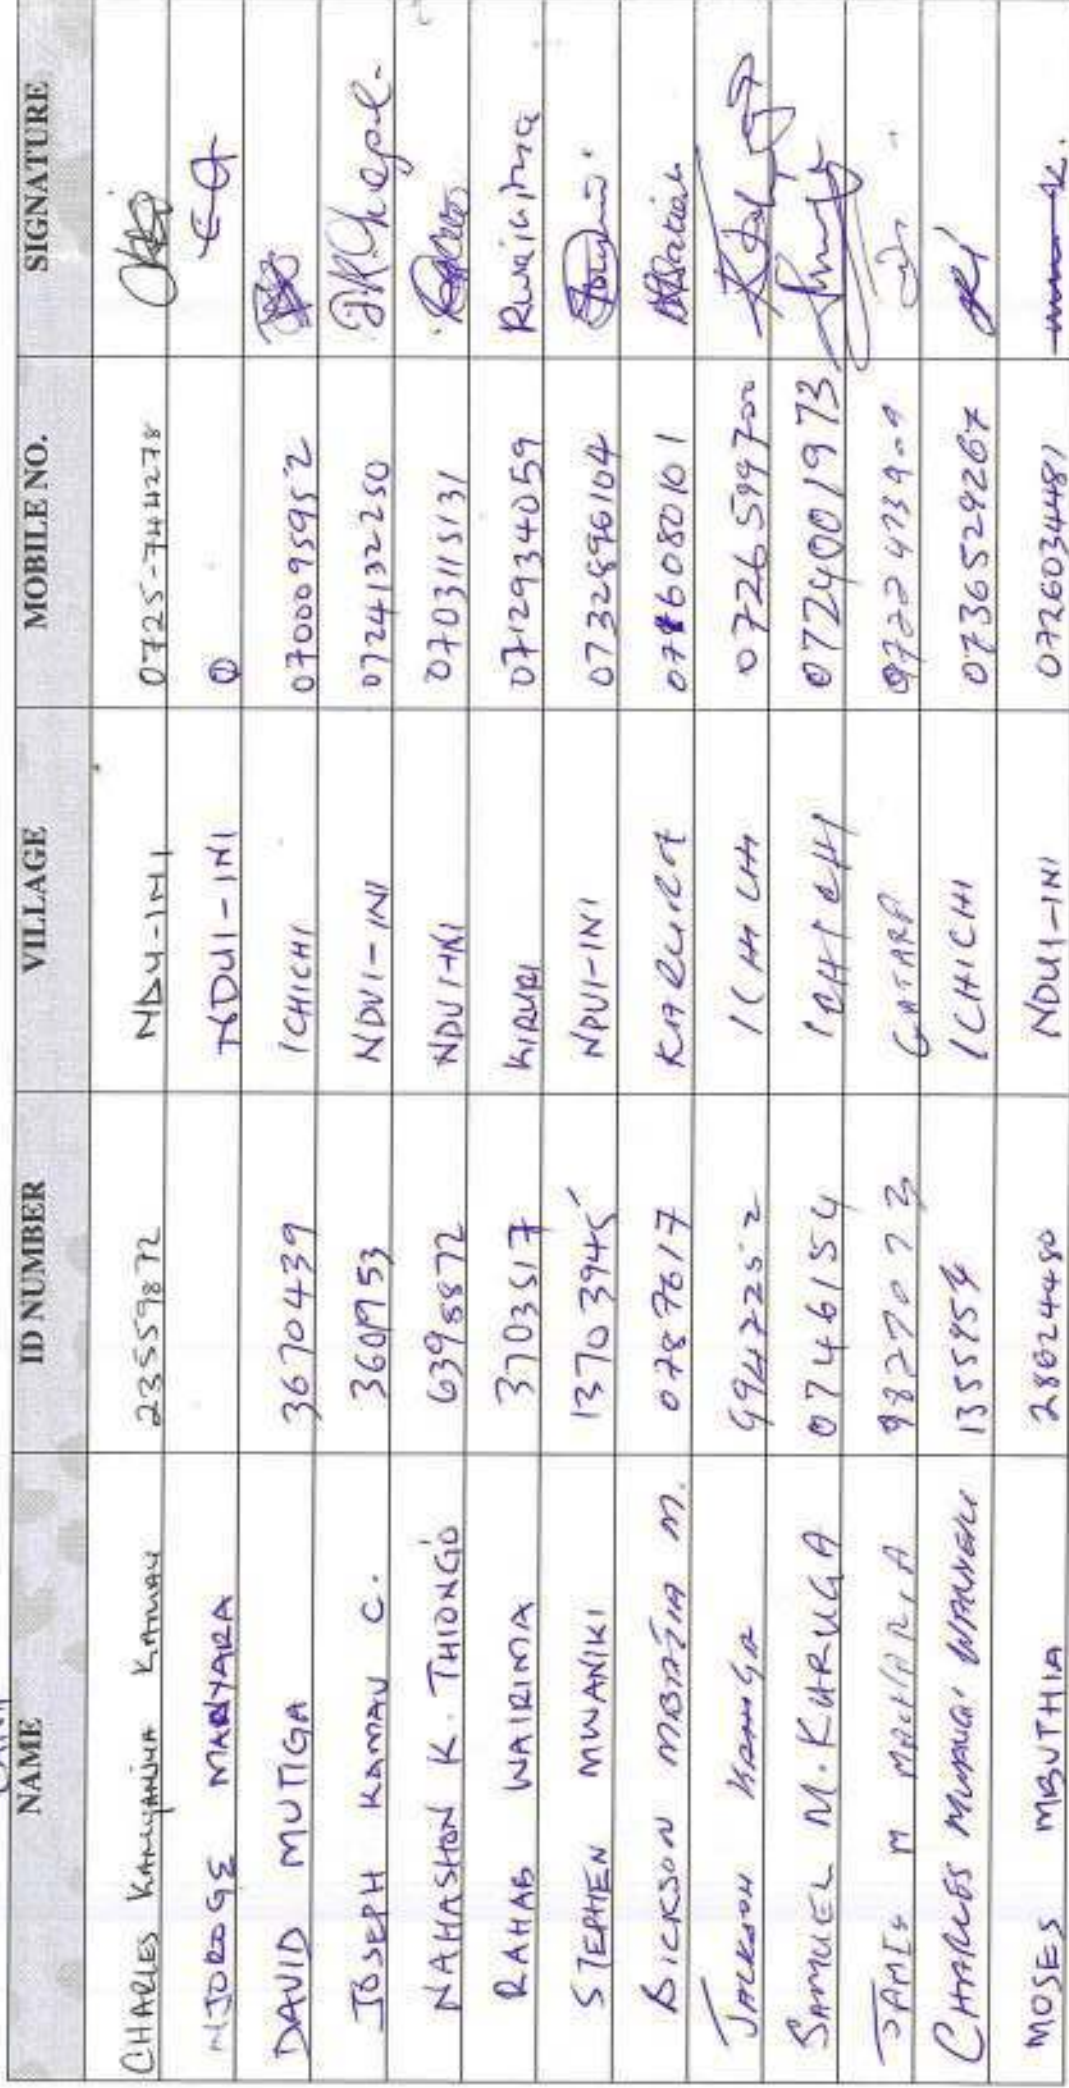 NAME ID NUMBER VILLAGE MOBILE NO. SIGNATURE
CHARLES KANYANJUA KAMAU 23559872 NDU-INI 0725-744278
NJOROGE MANYARA NDUI-INI
DAVID MUTIGA 3670439 ICHICHI 0700095952
JOSEPH KAMAU C. 3609953 NDUI-INI 0724132250
NAHASHON K. THIONGO 6398872 NDUI-INI 0703115131
RAHAB WAIRIMA 3703517 KIRURI 0729934059 Rwairima
STEPHEN MWANIKI 13703945 NDUI-INI 0732896104
BICKSON MBATIA M. 0787617 KARURA
JACKSON KAMGA 9942252 ICHICHI
SAMUEL M. KARUGA 0746154 ICHICHI 0724001973
JAMES M MACHARIA GATARA
CHARLES MURAGI ICHICHI 0736529267
MOSES MBUTHIA 28624480 NDUI-INI 0726034481